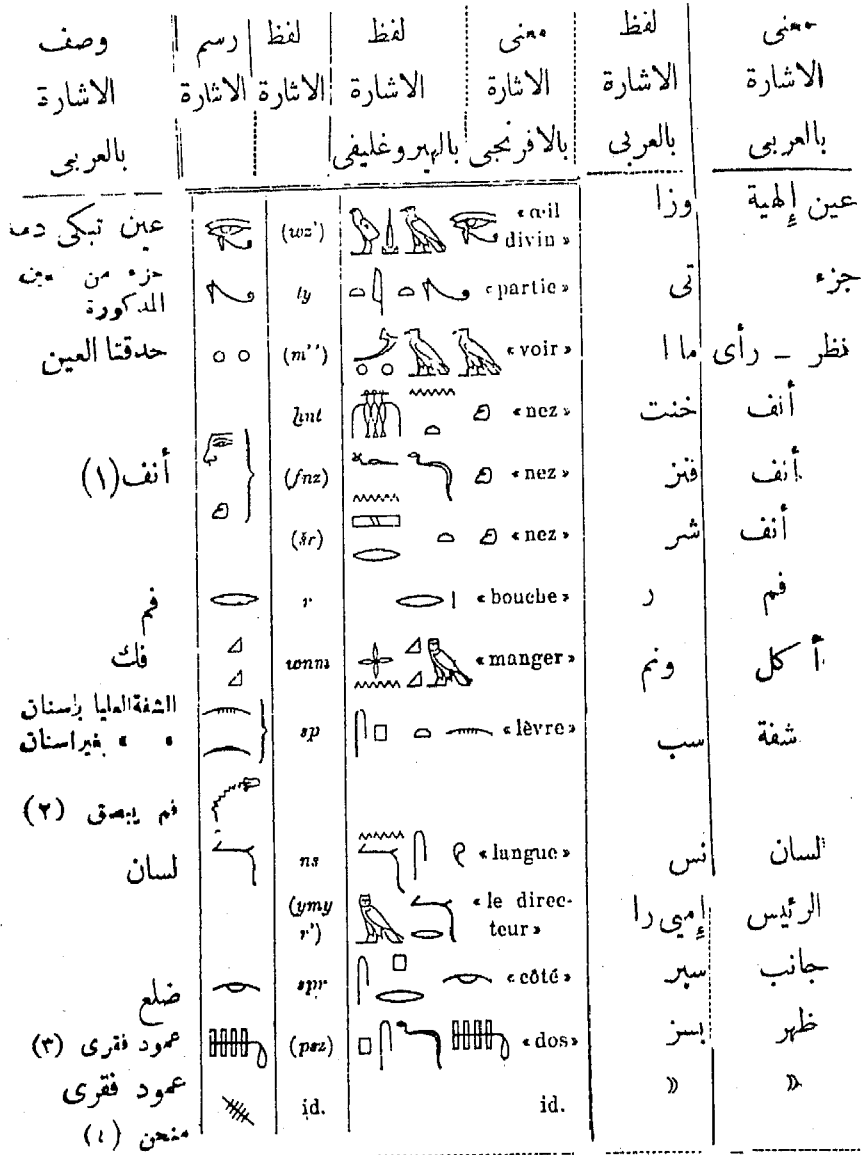 معنى الاشارة بالعربى | لفظ الاشارة بالعربى | معنى الاشارة بالافرنجى | لفظ الاشارة بالهيروغليفى | لفظ الاشارة | رسم الاشارة | وصف الاشارة بالعربى
عين إلهية | وزا | « œil divin » | (wz') | عين تبكى
جزء | تى | « partie » | ty | جزء من المذكورة
نظر ــ رأى | ما ا | « voir » | (m'') | حدقتا العين
أنف | خنت | « nez » | ḫnt
أنف | فنز | « nez » | (fnz) | أنف (١)
أنف | شر | « nez » | (šr)
فم | ر | « bouche » | r | فم
أكل | ونم | « manger » | wnm | فك
شفة | سب | « lèvre » | sp | الشفة العليا بإسنان
» » بغير اسنان
فم يبصق (٢)
لسان | نس | « langue » | ns | لسان
الرئيس | إميى را | « le direc-teur » | (ymy r')
جانب | سبر | « côté » | spr | ضلع
ظهر | بسز | « dos » | (psz) | عمود فقرى (٣)
» | » | id. | id. | عمود فقرى منحن (٤)